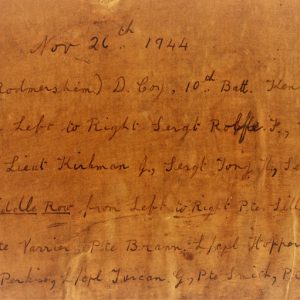 Nov 26th. 1944
Rodmersham) D. Coy, 10th Batt. Ken
Left to Right Sergt Rolfe F,
Lieut Kirkman J, Sergt Tong H, Se
iddle Row from Left to Right Pte. Sil
te Varrier, Pte Brann, L/cpl Hopper
Perkins, L/cpl Tuscan. G, Pte Smith, P